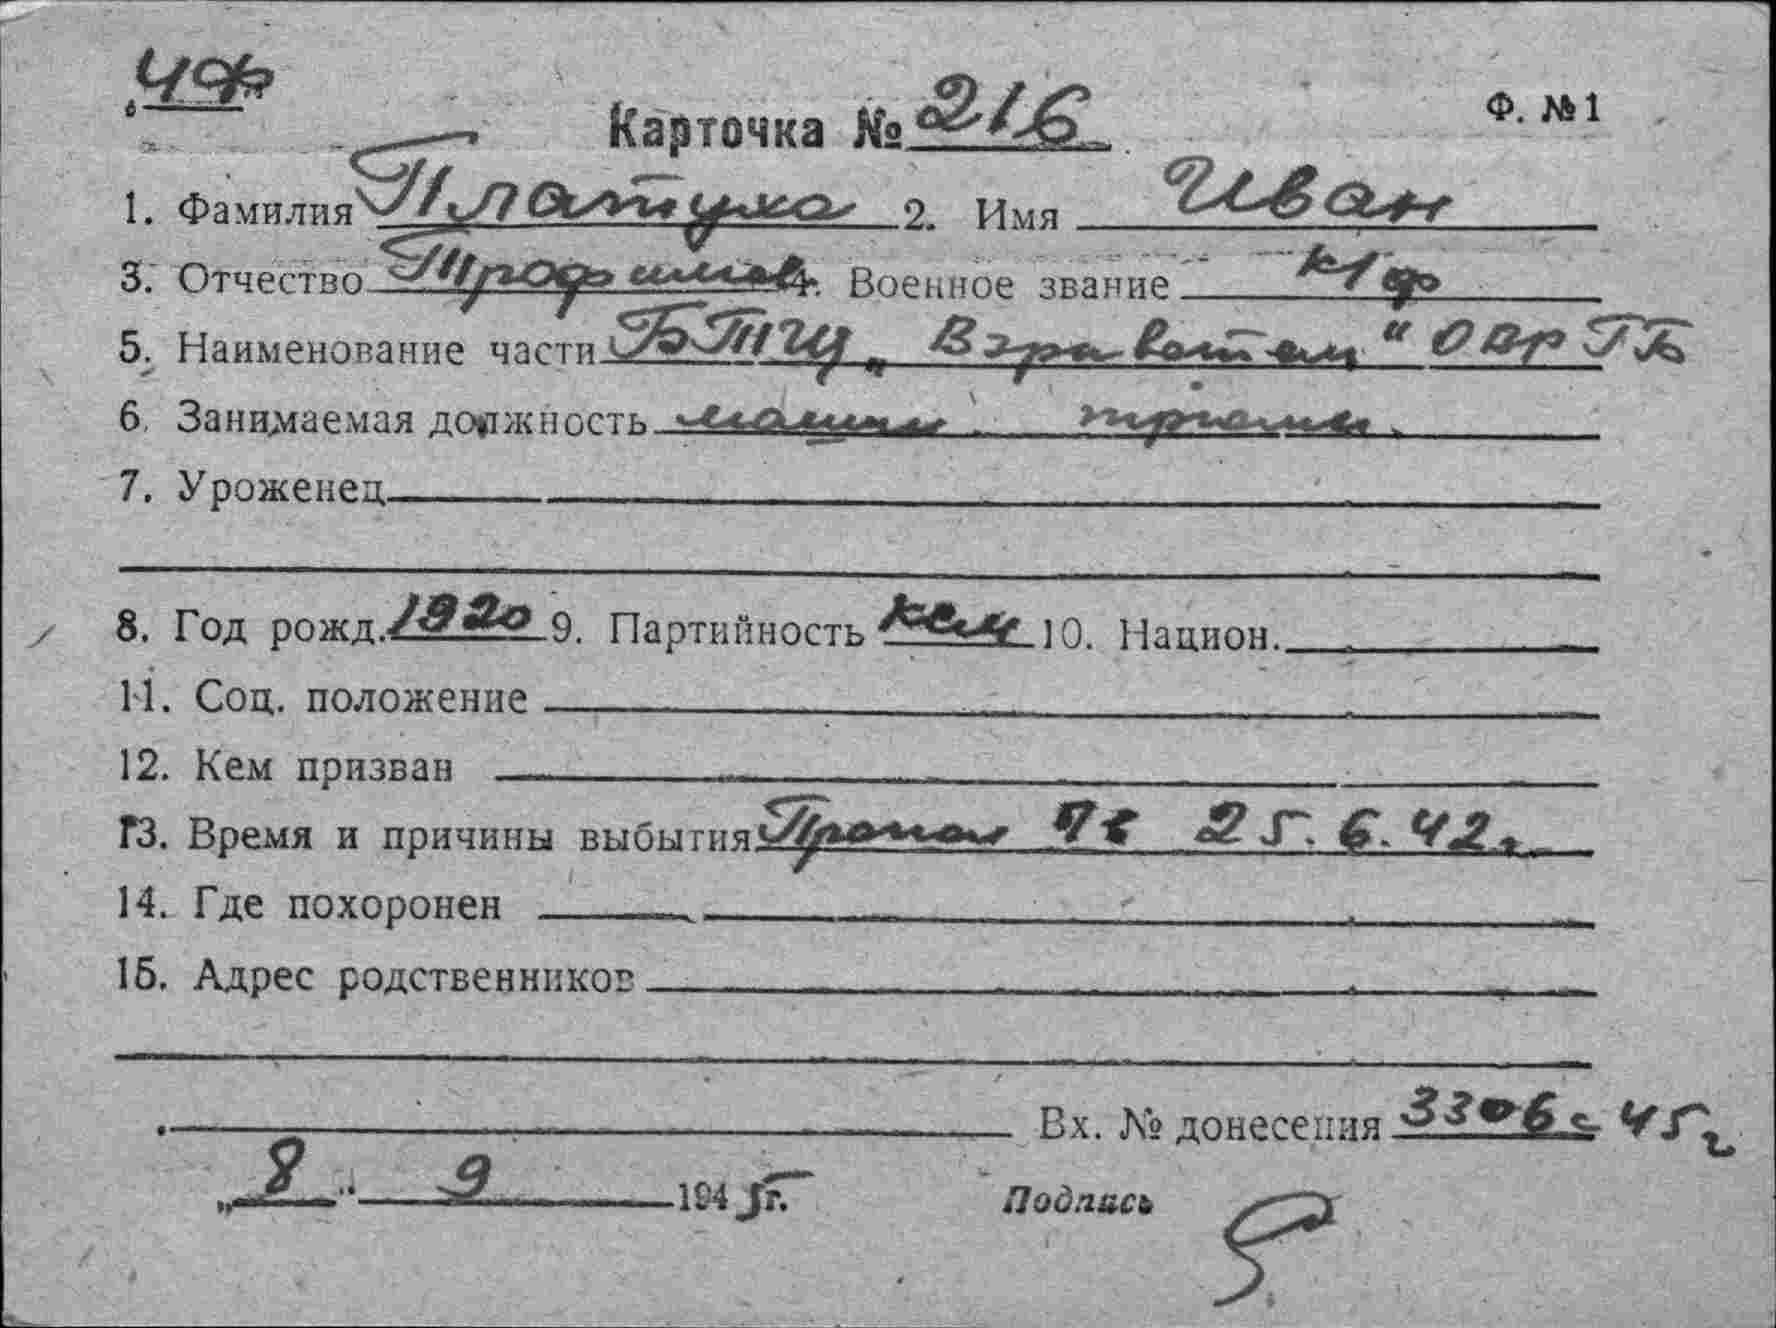 ЧФ
Карточка № 216 Ф. №1
1. Фамилия Платуха 2. Имя Иван
3. Отчество Трофимов 4. Военное звание к/ф
5. Наименование части БТЩ „Взрыватель" ОВР ГБ
6. Занимаемая должность машин. трюмн.
7. Уроженец
8. Год рожд. 1920 9. Партийность 10. Национ.
11. Соц. положение
12. Кем призван
13. Время и причины выбытия Пропал 25.6.42г.
14. Где похоронен
15. Адрес родственников
Вх. № донесения 3306с 45г
„8" 9 1945г. Подпись